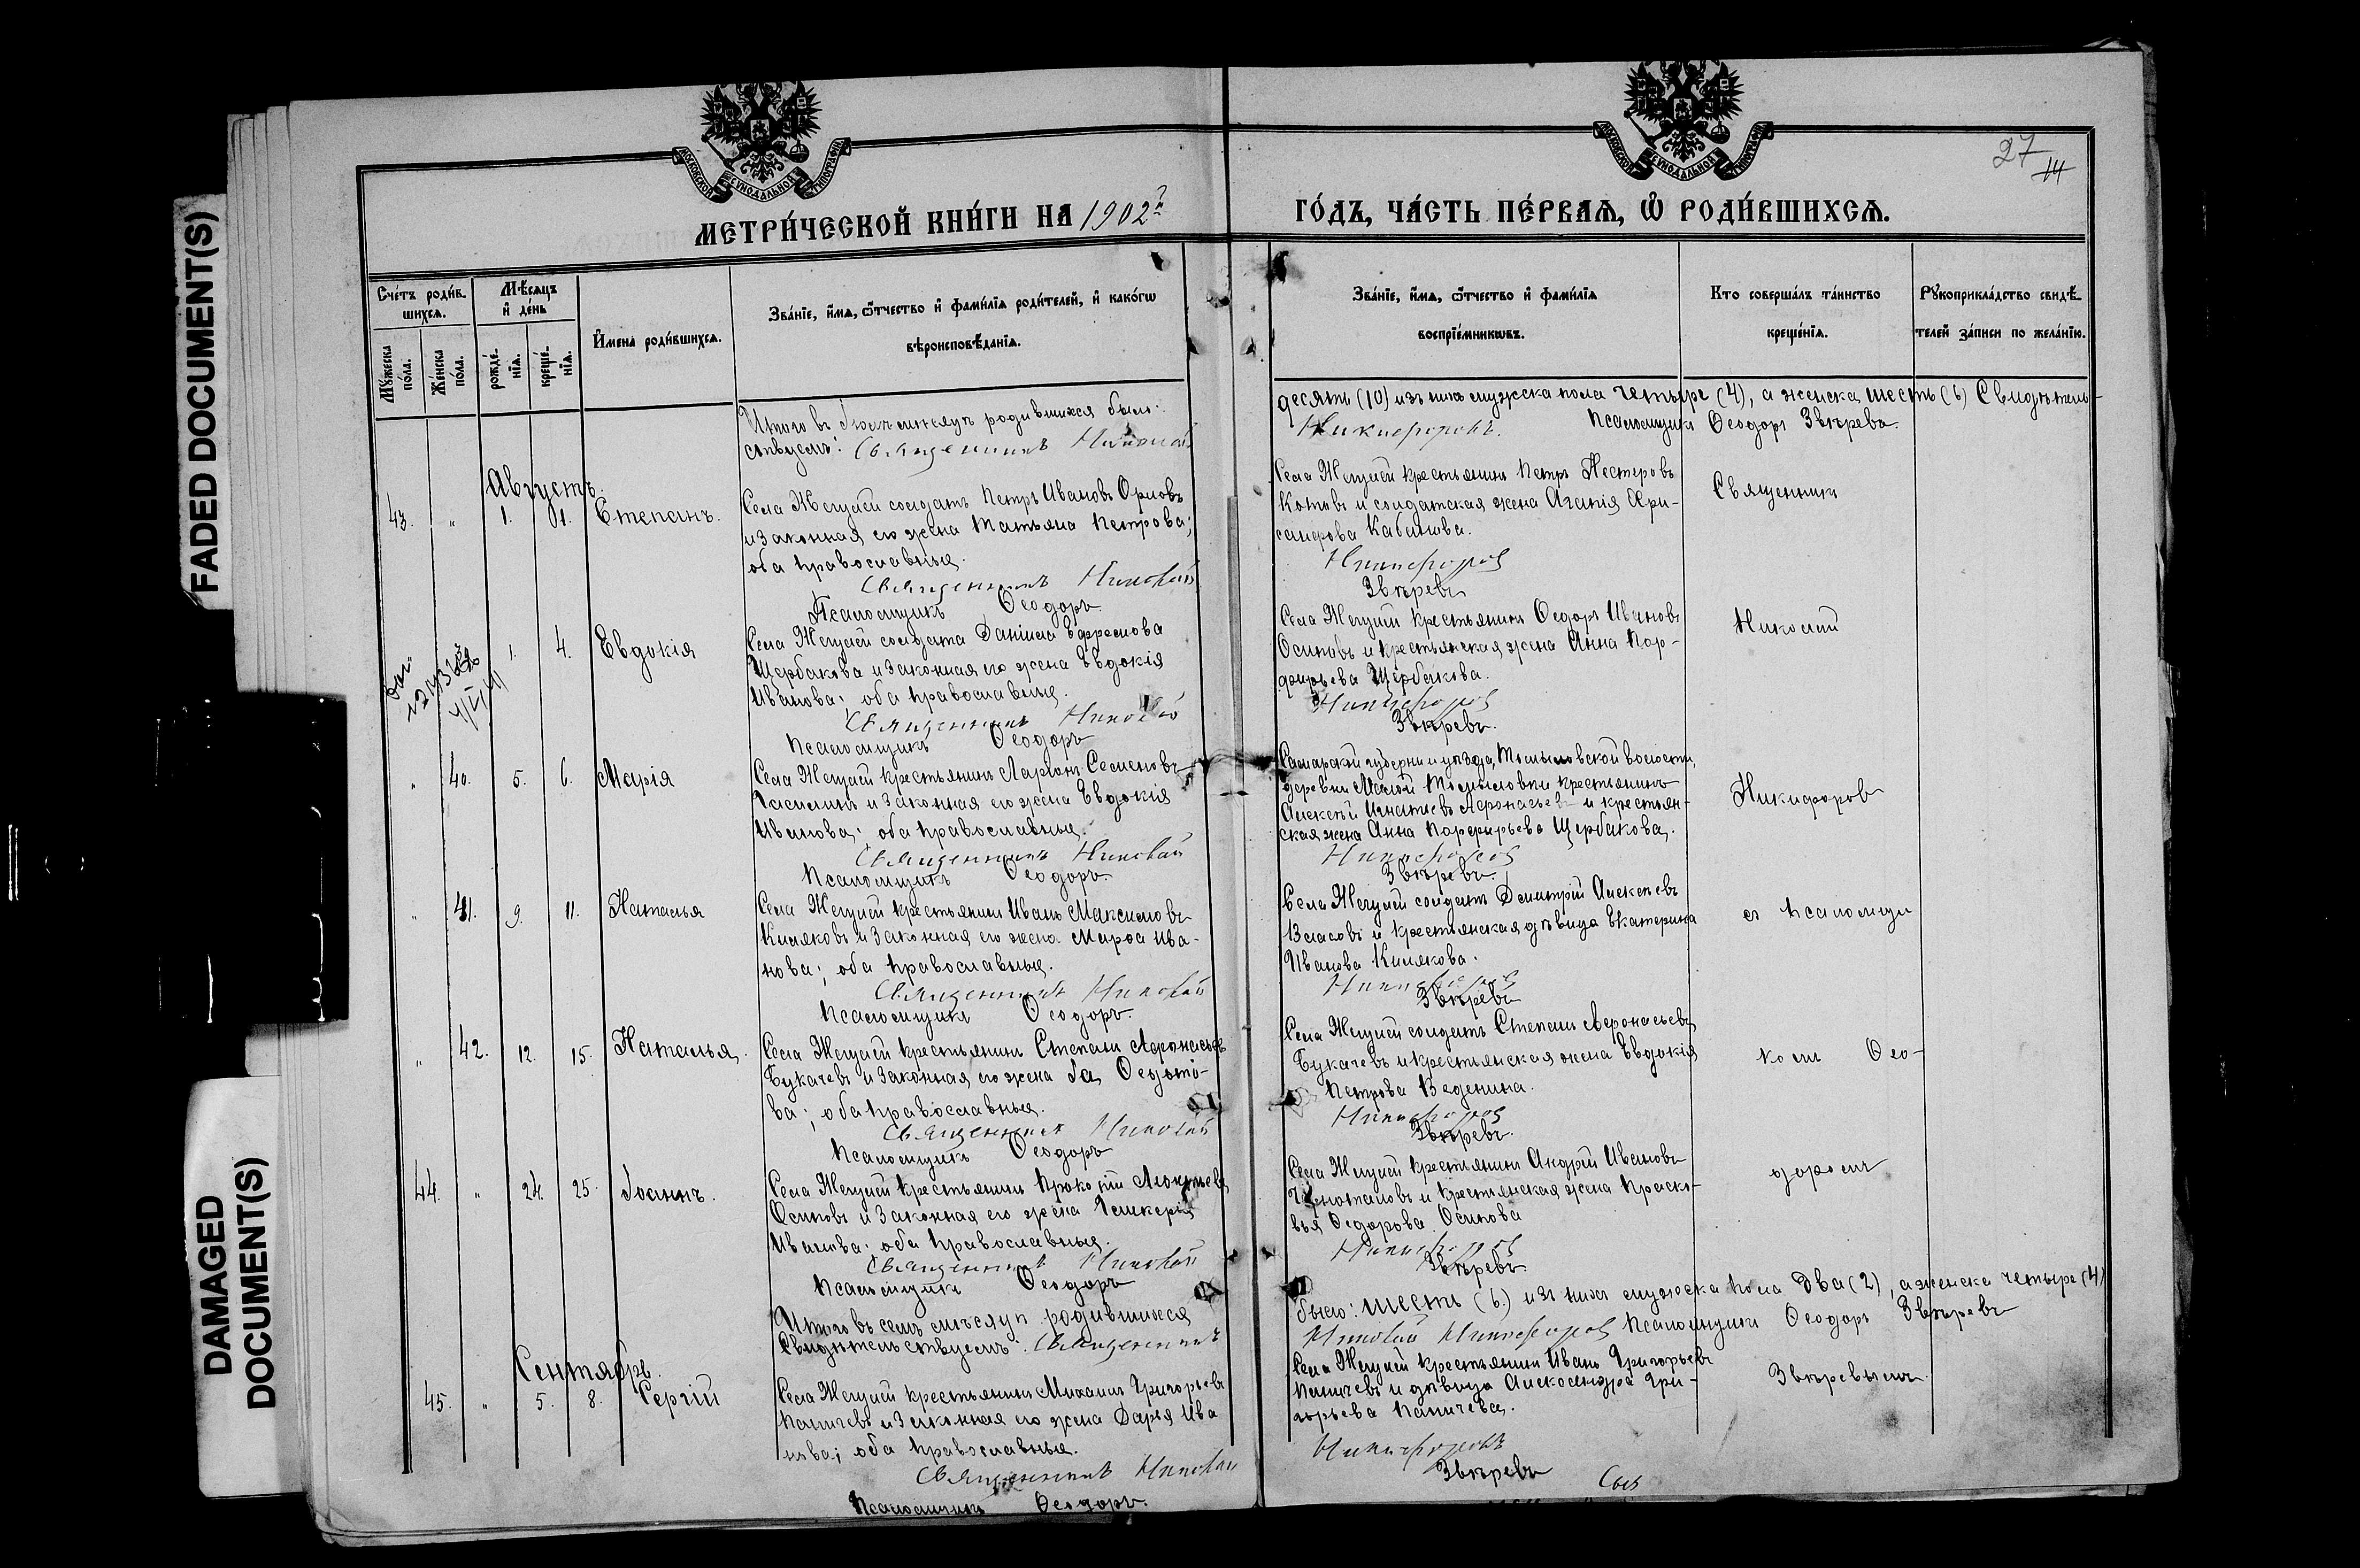 FADED DOCUMENT(S)
DAMAGED
DOCUMENT(S)
МОСКОВСКОЙ СѴНОДАЛЬНОЙ ТИПОГРАФІИ
МОСКОВСКОЙ СѴНОДАЛЬНОЙ ТИПОГРАФІИ
27
14
МЕТРИ́ЧЕСКОЙ КНИ́ГИ НА 1902й
ГО́ДЪ, ЧА́СТЬ ПЕ́РВАѦ, Ѡ҆ РОДИ́ВШИХСѦ.
Сче́тъ роди́в-
шихсѧ.
Мꙋ́жеска
по́ла.
Же́нска
по́ла.
Мѣ́сѧцъ
и҆ де́нь
рожде́-
нїѧ.
креще́-
нїѧ.
И҆мена̀ роди́вшихсѧ.
Зва́нїе, и҆́мѧ, ѻ҆́тчество и҆ фами́лїѧ роди́телей, и҆ како́гѡ
вѣроисповѣ́данїѧ.
Зва́нїе, и҆́мѧ, ѻ҆́тчество и҆ фами́лїѧ
воспрїе́мникѡвъ.
Кто̀ соверша́лъ та́инство
креще́нїѧ.
Рꙋкоприкла́дство свидѣ́-
телей за́писи по жела́нїю.
Итого въ Іюлѣ мѣсяцѣ родившихся было:
десять (10) изъ нихъ мужска пола четыре (4), а женска шесть (6) Свидѣтель-
ствуемъ: Священникъ Николай
Никифоровъ. Псаломщикъ Ѳеодоръ Звѣревъ.
Августъ.
43. " 1. 1. Степанъ.
Села Жегулей солдатъ Петръ Ивановъ Орловъ
и законная его жена Татьяна Петрова;
оба православные.
Священникъ Николай
Псаломщикъ Ѳеодоръ
Села Жегулей крестьянинъ Петръ Нестеровъ
Котовъ и солдатская жена Агапія Хри-
санфова Кабанова.
Никифоров
Звѣревъ
Священник
1. 4. Евдокія
Села Жегулей солдата Даніила Ефремова
Щербакова и законная его жена Евдокія
Иванова; оба православные.
Священникъ Николай
Псаломщикъ Ѳеодоръ
Села Жегулей крестьянинъ Ѳедоръ Ивановъ
Осиповъ и крестьянская жена Анна Пор-
фирьева Щербакова.
Никифоров
Звѣревъ.
Николай
" 40. 5. 6. Марія
Села Жегулей крестьянинъ Ларіонъ Семеновъ
и законная его жена Евдокія
Иванова; оба православные.
Священникъ Николай
Псаломщикъ Ѳеодоръ.
Самарской губерніи и уѣзда, волости,
деревни крестьянинъ
Алексѣй Игнатьевъ Афонасьевъ и крестьян-
ская жена Анна Порфирьева Щербакова.
Никифоров
Звѣревъ.
Никифоров
" 41. 9. 11. Наталья
Села Жегулей крестьянинъ Иванъ Максимовъ
Киляковъ и законная его жена Марѳа Ива-
нова; оба православные.
Священникъ Николай
Псаломщикъ Ѳеодоръ.
Села Жегулей солдатъ Димитрій Алексѣевъ
Власовъ и крестьянская дѣвица Екатерина
Иванова Килякова.
Никифоров
Звѣревъ
съ псаломщи
" 42. 12. 15. Наталья.
Села Жегулей крестьянинъ Степанъ Афонасьевъ
Букачевъ и законная его жена Ѳедото-
ва; оба православные.
Священникъ Николай
Псаломщикъ Ѳеодоръ
Села Жегулей солдатъ Степанъ Афонасьевъ
Букачевъ и крестьянская жена Евдокія
Петрова Веденина.
Никифоров
Звѣревъ.
комъ Ѳео-
44. " 24. 25. Іоаннъ.
Села Жегулей крестьянинъ Прокопій Леонтьевъ
Осиповъ и законная его жена Гликерія
Иванова; оба православные.
Священникъ Николай
Псаломщикъ Ѳеодоръ
Села Жегулей крестьянинъ Андрей Ивановъ
и крестьянская жена Праско-
вья Ѳедорова Осипова
Никифоров
Звѣревъ.
доромъ
Итого въ семъ мѣсяцѣ родившихся
было: шесть (6.) изъ нихъ мужеска пола два (2), а женска четыре (4)
Свидѣтельствуемъ: Священникъ
Николай Никифоров Псаломщикъ Ѳеодоръ Звѣревъ
Сентябрь.
45. " 5. 8. Сергій
Села Жегулей крестьянинъ Михаилъ Григорьевъ
Паничевъ и законная его жена Дарья Ива
нова; оба православные.
Священникъ Николай
Псаломщикъ Ѳеодоръ.
Села Жегулей крестьянинъ Иванъ Григорьевъ
Паничевъ и дѣвица Александра Гри-
горьева Паничева.
Никифоровъ
Звѣревъ
Звѣревымъ.